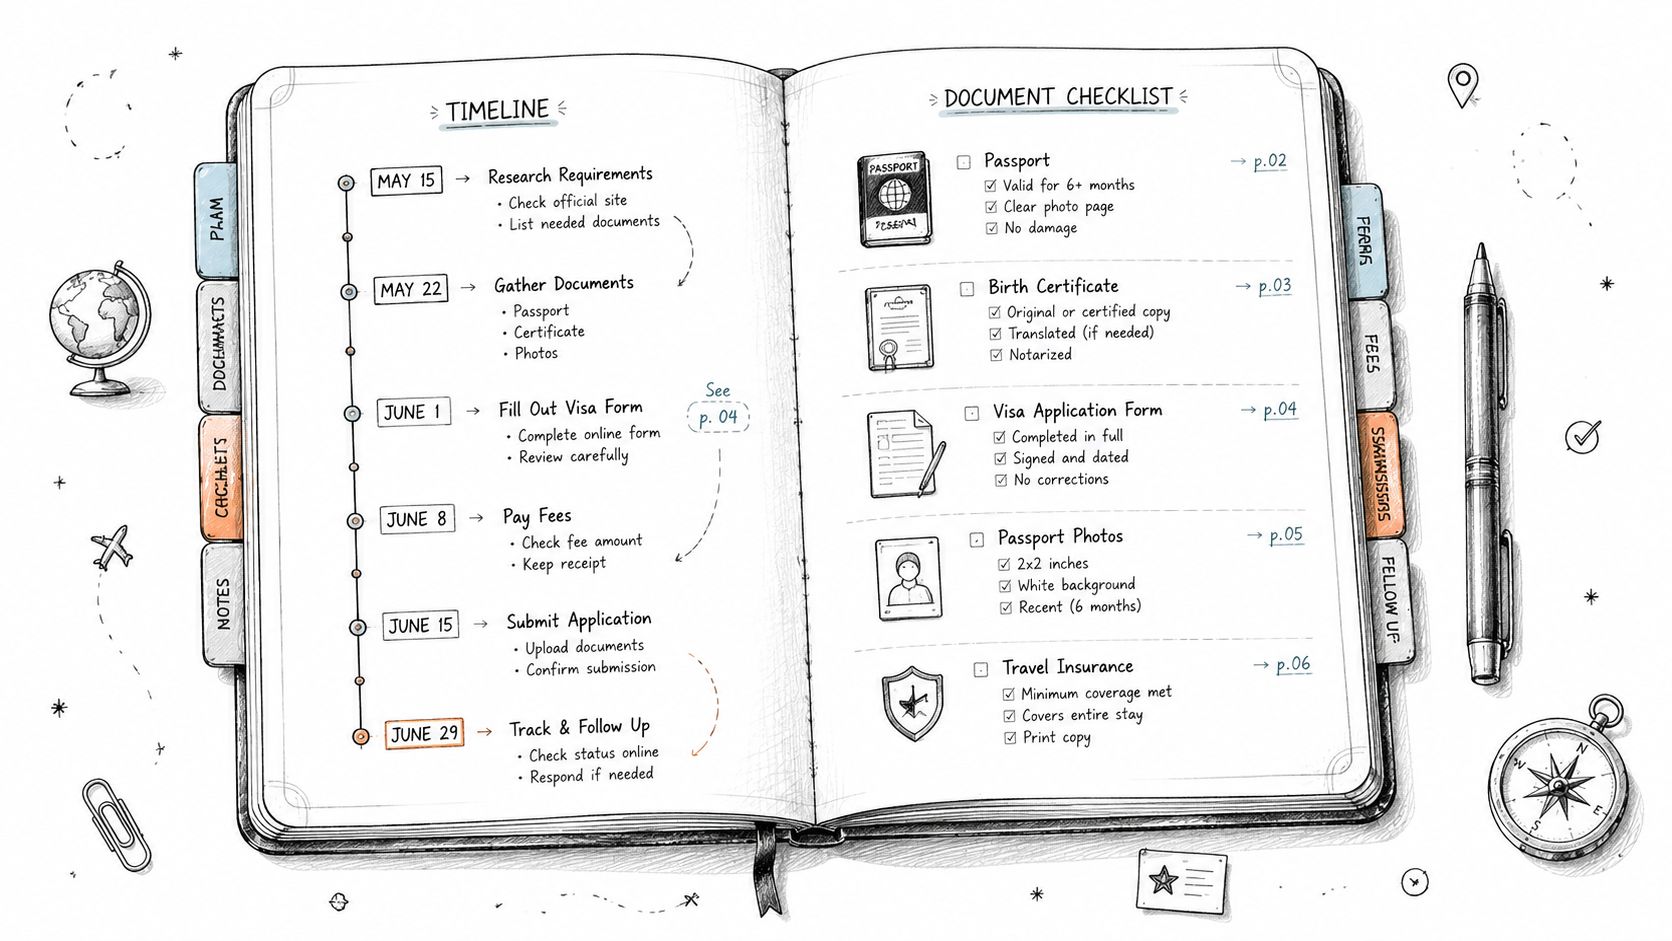 TIMELINE
MAY 15 → Research Requirements
• Check official site
• List needed documents
MAY 22 → Gather Documents
• Passport
• Certificate
• Photos
See
p. 04
JUNE 1 → Fill Out Visa Form
• Complete online form
• Review carefully
JUNE 8 → Pay Fees
• Check fee amount
• Keep receipt
JUNE 15 → Submit Application
• Upload documents
• Confirm submission
JUNE 29 → Track & Follow Up
• Check status online
• Respond if needed
NOTES
DOCUMENT CHECKLIST
PASSPORT
Passport → p.02
Valid for 6+ months
Clear photo page
No damage
Birth Certificate → p.03
Original or certified copy
Translated (if needed)
Notarized
Visa Application Form → p.04
Completed in full
Signed and dated
No corrections
Passport Photos → p.05
2x2 inches
White background
Recent (6 months)
Travel Insurance → p.06
Minimum coverage met
Covers entire stay
Print copy
FELLOW UP
N
E
S
W